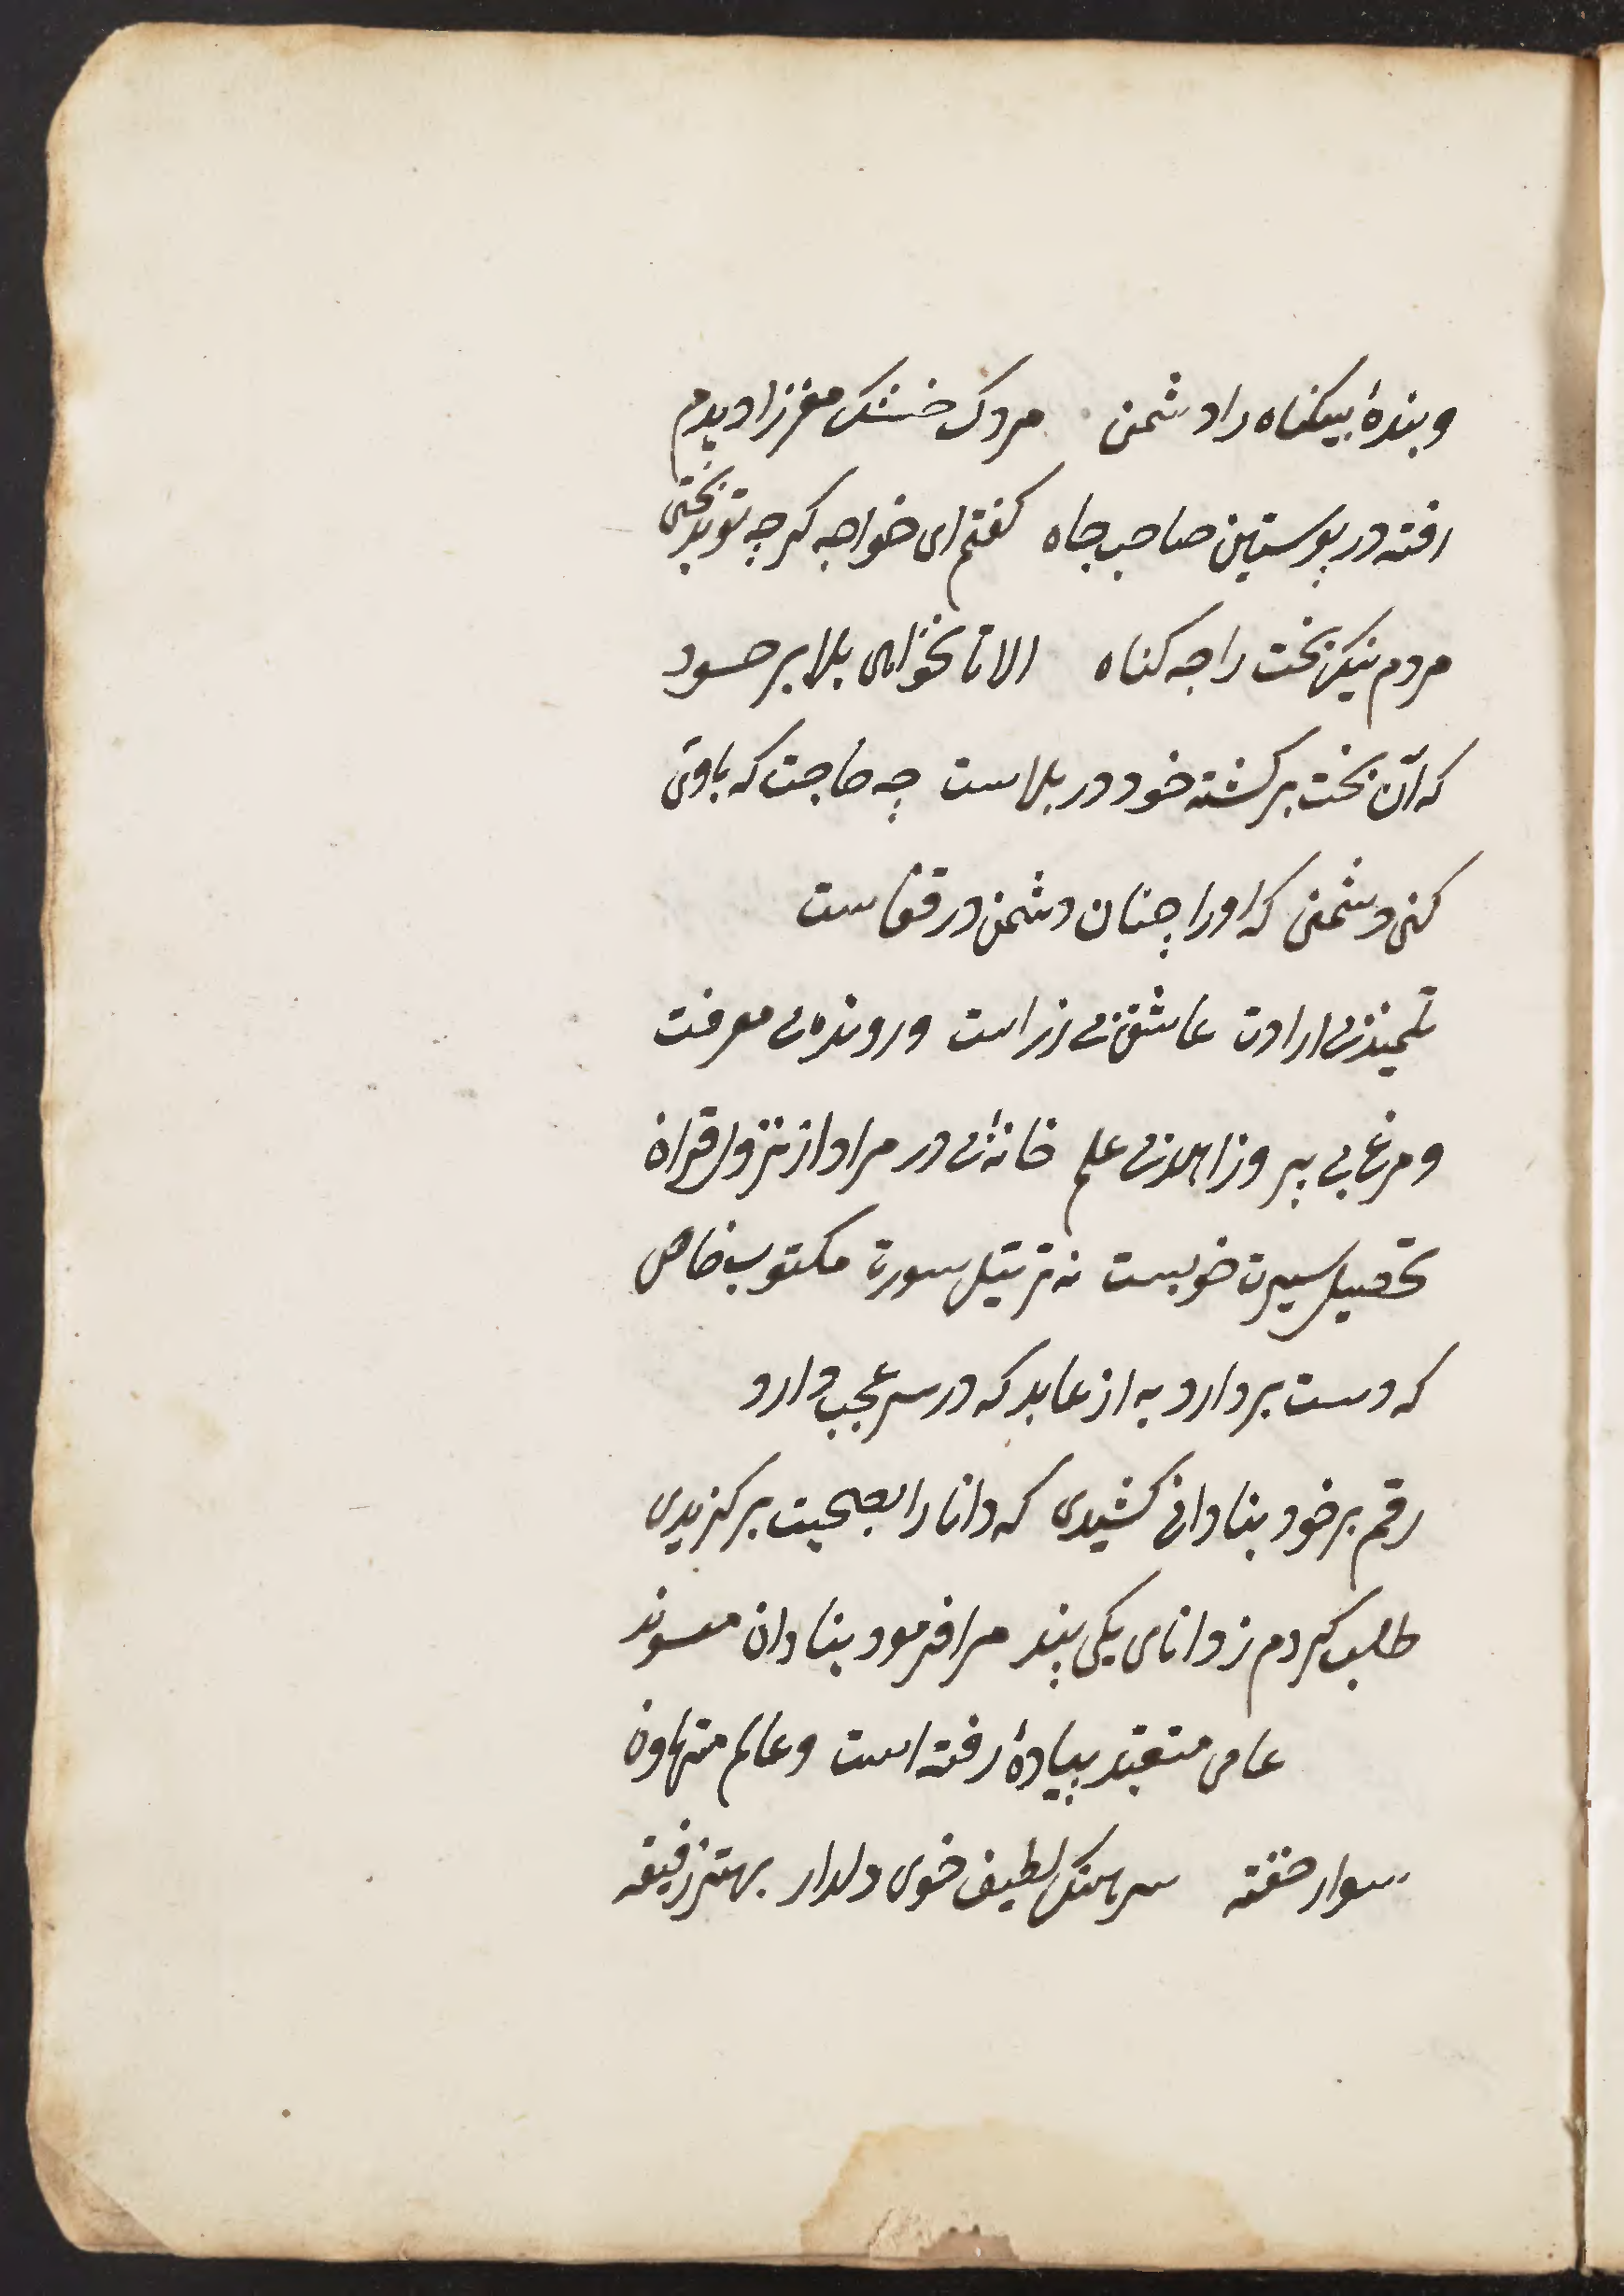 و بندهٔ بیکناه را دشمن مردک خشک مغز را دیدم
رفته در پوستین صاحب جاه کفتم ای خواجه کر چه تو بدبختی
مردم نیکبخت را چه کناه الا تا نخواهی بلا بر حسود
که آن بخت برکشته خود در بلاست چه حاجت که با وی
کنی دشمنی که او را چنان دشمن در قفاست
تلمیذ بی ارادت عاشق بی زر است و رونده بی معرفت
و مرغ بی پر و زاهد بی علم خانهٔ بی در مراد از نزول قران
تحصیل سیرت خوبست نه ترتیل سورت مکتوب خاص
که دست بردارد به از عابد که در سر عجب دارد
رقم بر خود بنادانی کشیدی که دانا را بصحبت برکزیدی
طلب کردم ز دانای یکی پند مرا فرمود بنادان مپیوند
عامی متعبد پیادهٔ رفته است و عالم متهاون
سوار خفته سرهنک لطیف خوی دلدار بهتر ز فقیه